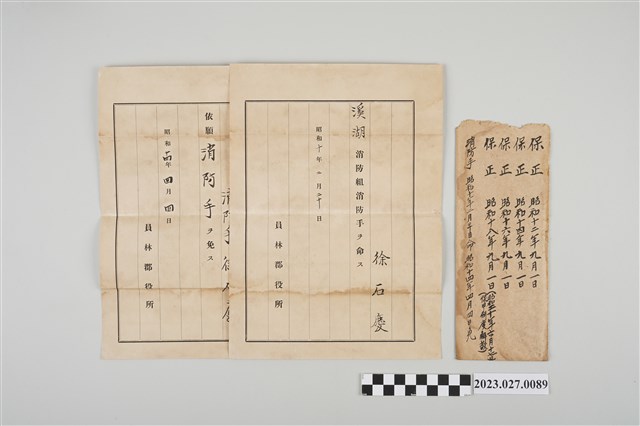 徐石慶
溪湖消防組消防手ヲ命ス
昭和十年一月二十日
員林郡役所
消防手徐石慶
依願消防手ヲ免ス
昭和十四年四月四日
員林郡役所
保正 昭和十二年九月一日
保正 昭和十四年九月一日
保正 昭和十六年九月一日
保正 昭和十八年九月一日
消防手 昭和十年一月二十日 昭和十四年四月四日免
2023.027.0089